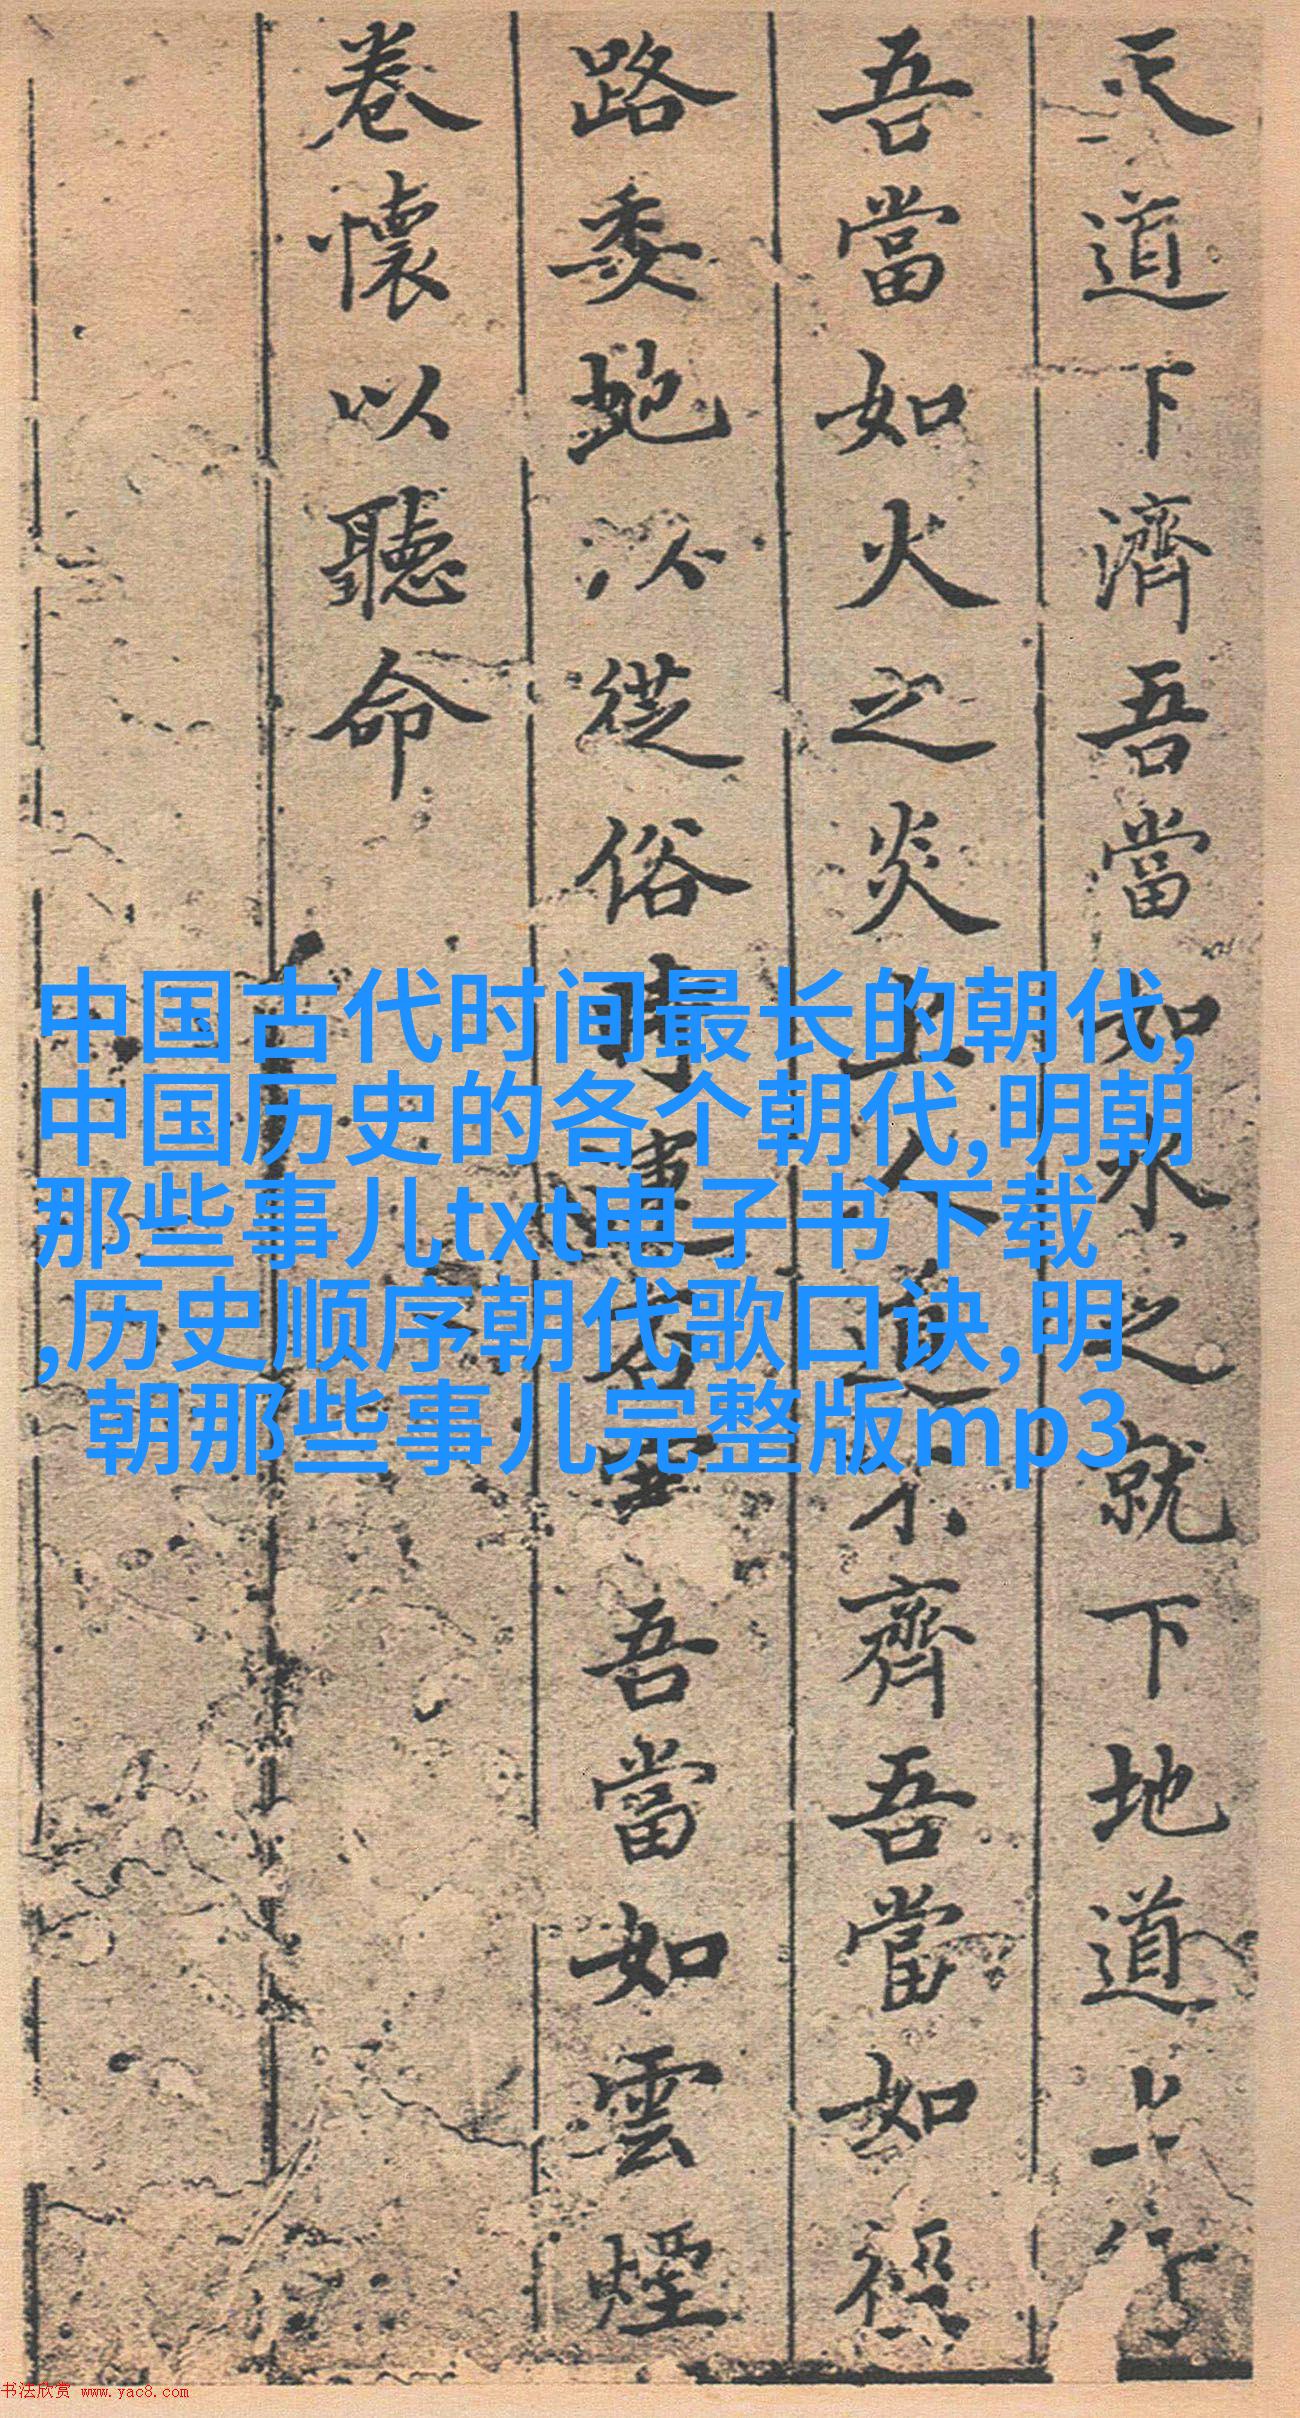 天道下濟吾當如水之就下地道上行
吾當如火之炎上人道不齊吾當如徑
路委虵以從俗時運吾當如雲煙
卷懷以聽命
中国古代时间最长的朝代,
中国历史的各个朝代,明朝
那些事儿txt电子书下载
,历史顺序朝代歌口诀,明
朝那些事儿完整版mp3
书法欣赏 www.yac8.com